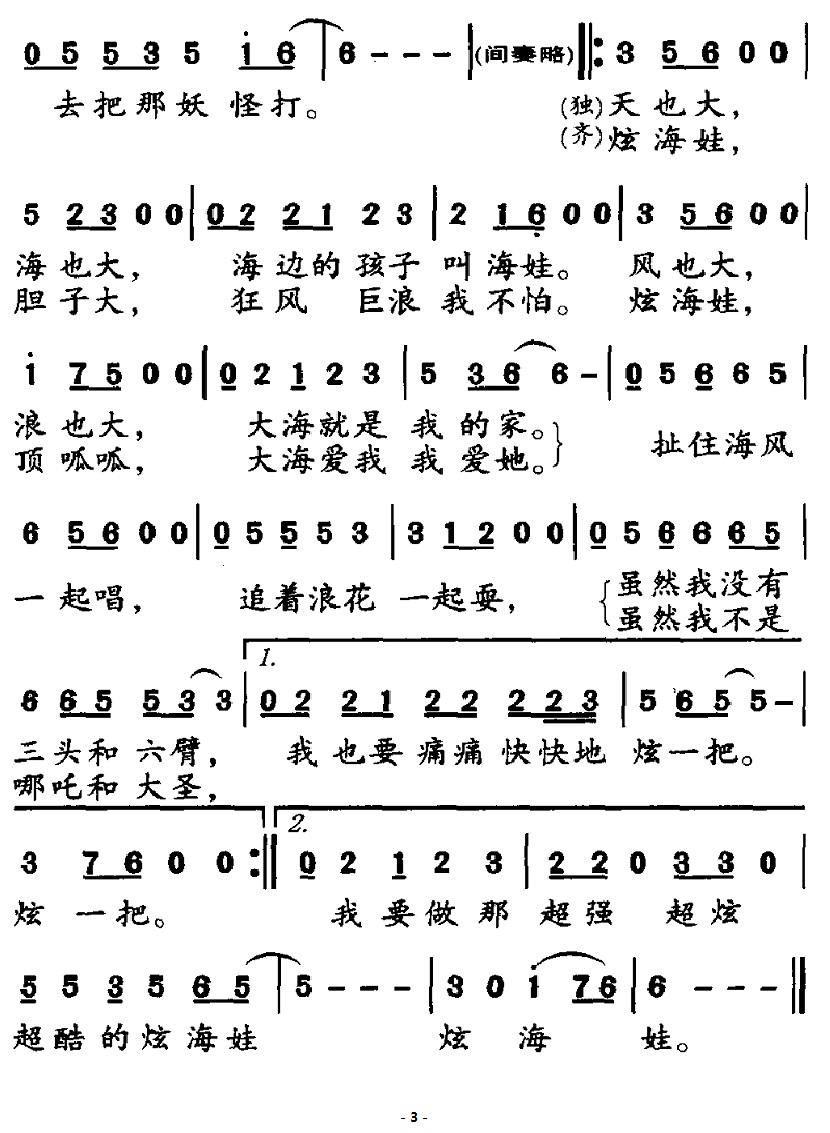 0 5 5 3 5 i 6 | 6 - - - | (间奏略) ‖: 3 5 6 0 0 |
去把那妖怪打。 (独)天也大，
(齐)炫海娃，
5 2 3 0 0 | 0 2 2 1 2 3 | 2 1 6 0 0 | 3 5 6 0 0 |
海也大， 海边的孩子 叫海娃。 风也大，
胆子大， 狂风 巨浪我不怕。 炫海娃，
i 7 5 0 0 | 0 2 1 2 3 | 5 3 6 6 - | 0 5 6 6 5 |
浪也大， 大海就是 我的家。 扯住海风
顶呱呱， 大海爱我 我爱她。
6 5 6 0 0 | 0 5 5 5 3 | 3 1 2 0 0 | 0 5 6 6 6 5 |
一起唱， 追着浪花 一起耍， 虽然我没有
虽然我不是
1.
6 6 5 5 3 3 | 0 2 2 1 2 2 2 2 3 | 5 6 5 5 - |
三头和六臂， 我也要痛痛快快地 炫一把。
哪吒和大圣，
2.
3 7 6 0 0 :‖ 0 2 1 2 3 | 2 2 0 3 3 0 |
炫一把。 我要做那 超强 超炫
5 5 3 5 6 5 | 5 - - - | 3 0 i 7 6 | 6 - - - ‖
超酷的炫海娃 炫 海 娃。
- 3 -